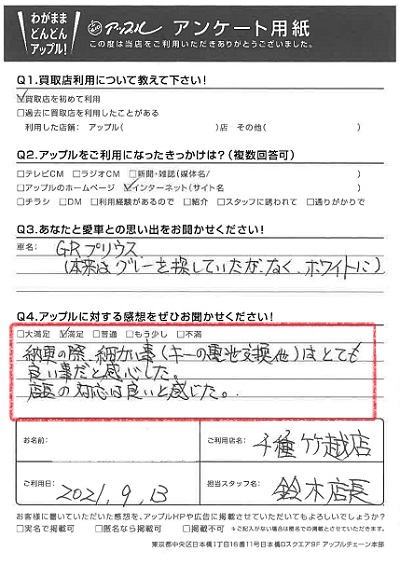 わがまま
どんどん
アップル!
アップル アンケート用紙
この度は当店をご利用いただきありがとうございました。
Q1.買取店利用について教えて下さい!
☑買取店を初めて利用
□過去に買取店を利用したことがある
利用した店舗: アップル( )店 その他( )
Q2.アップルをご利用になったきっかけは?(複数回答可)
□テレビCM □ラジオCM □新聞・雑誌(媒体名/ )
□アップルのホームページ ☑インターネット(サイト名 )
□チラシ □DM □利用経験があるので □紹介 □スタッフに誘われて □通りがかりで
Q3.あなたと愛車との思い出をお聞かせください!
車名: GRプリウス
(本来はグレーを探していたが、なく、ホワイトに)
Q4.アップルに対する感想をぜひお聞かせください!
□大満足 ☑満足 □普通 □もう少し □不満
納車の際、細かい事(キーの電池交換他)はとても
良い事だと感心した。
店長の対応は良いと感じた。
お名前:
ご利用店名: 千種竹越店
ご利用日: 2021,9,13
担当スタッフ名: 鈴木店長
お客様に書いていただいた感想を、アップルHPや広告に掲載させていただいてもよろしいでしょうか?
□実名で掲載可 □匿名なら掲載可 □掲載不可 ※ご記入がない場合は匿名での掲載とさせていただきます。
東京都中央区日本橋1丁目16番11号日本橋Dスクエア9F アップルチェーン本部